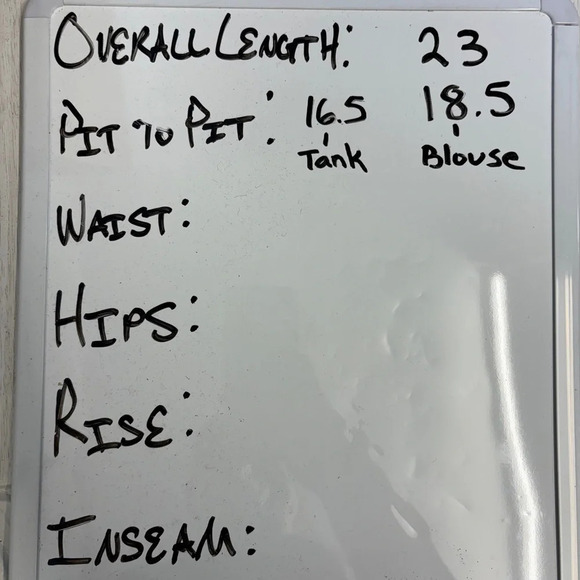 OVERALL LENGTH: 23
PIT TO PIT: 16.5 18.5
Tank Blouse
WAIST:
HIPS:
RISE:
INSEAM: